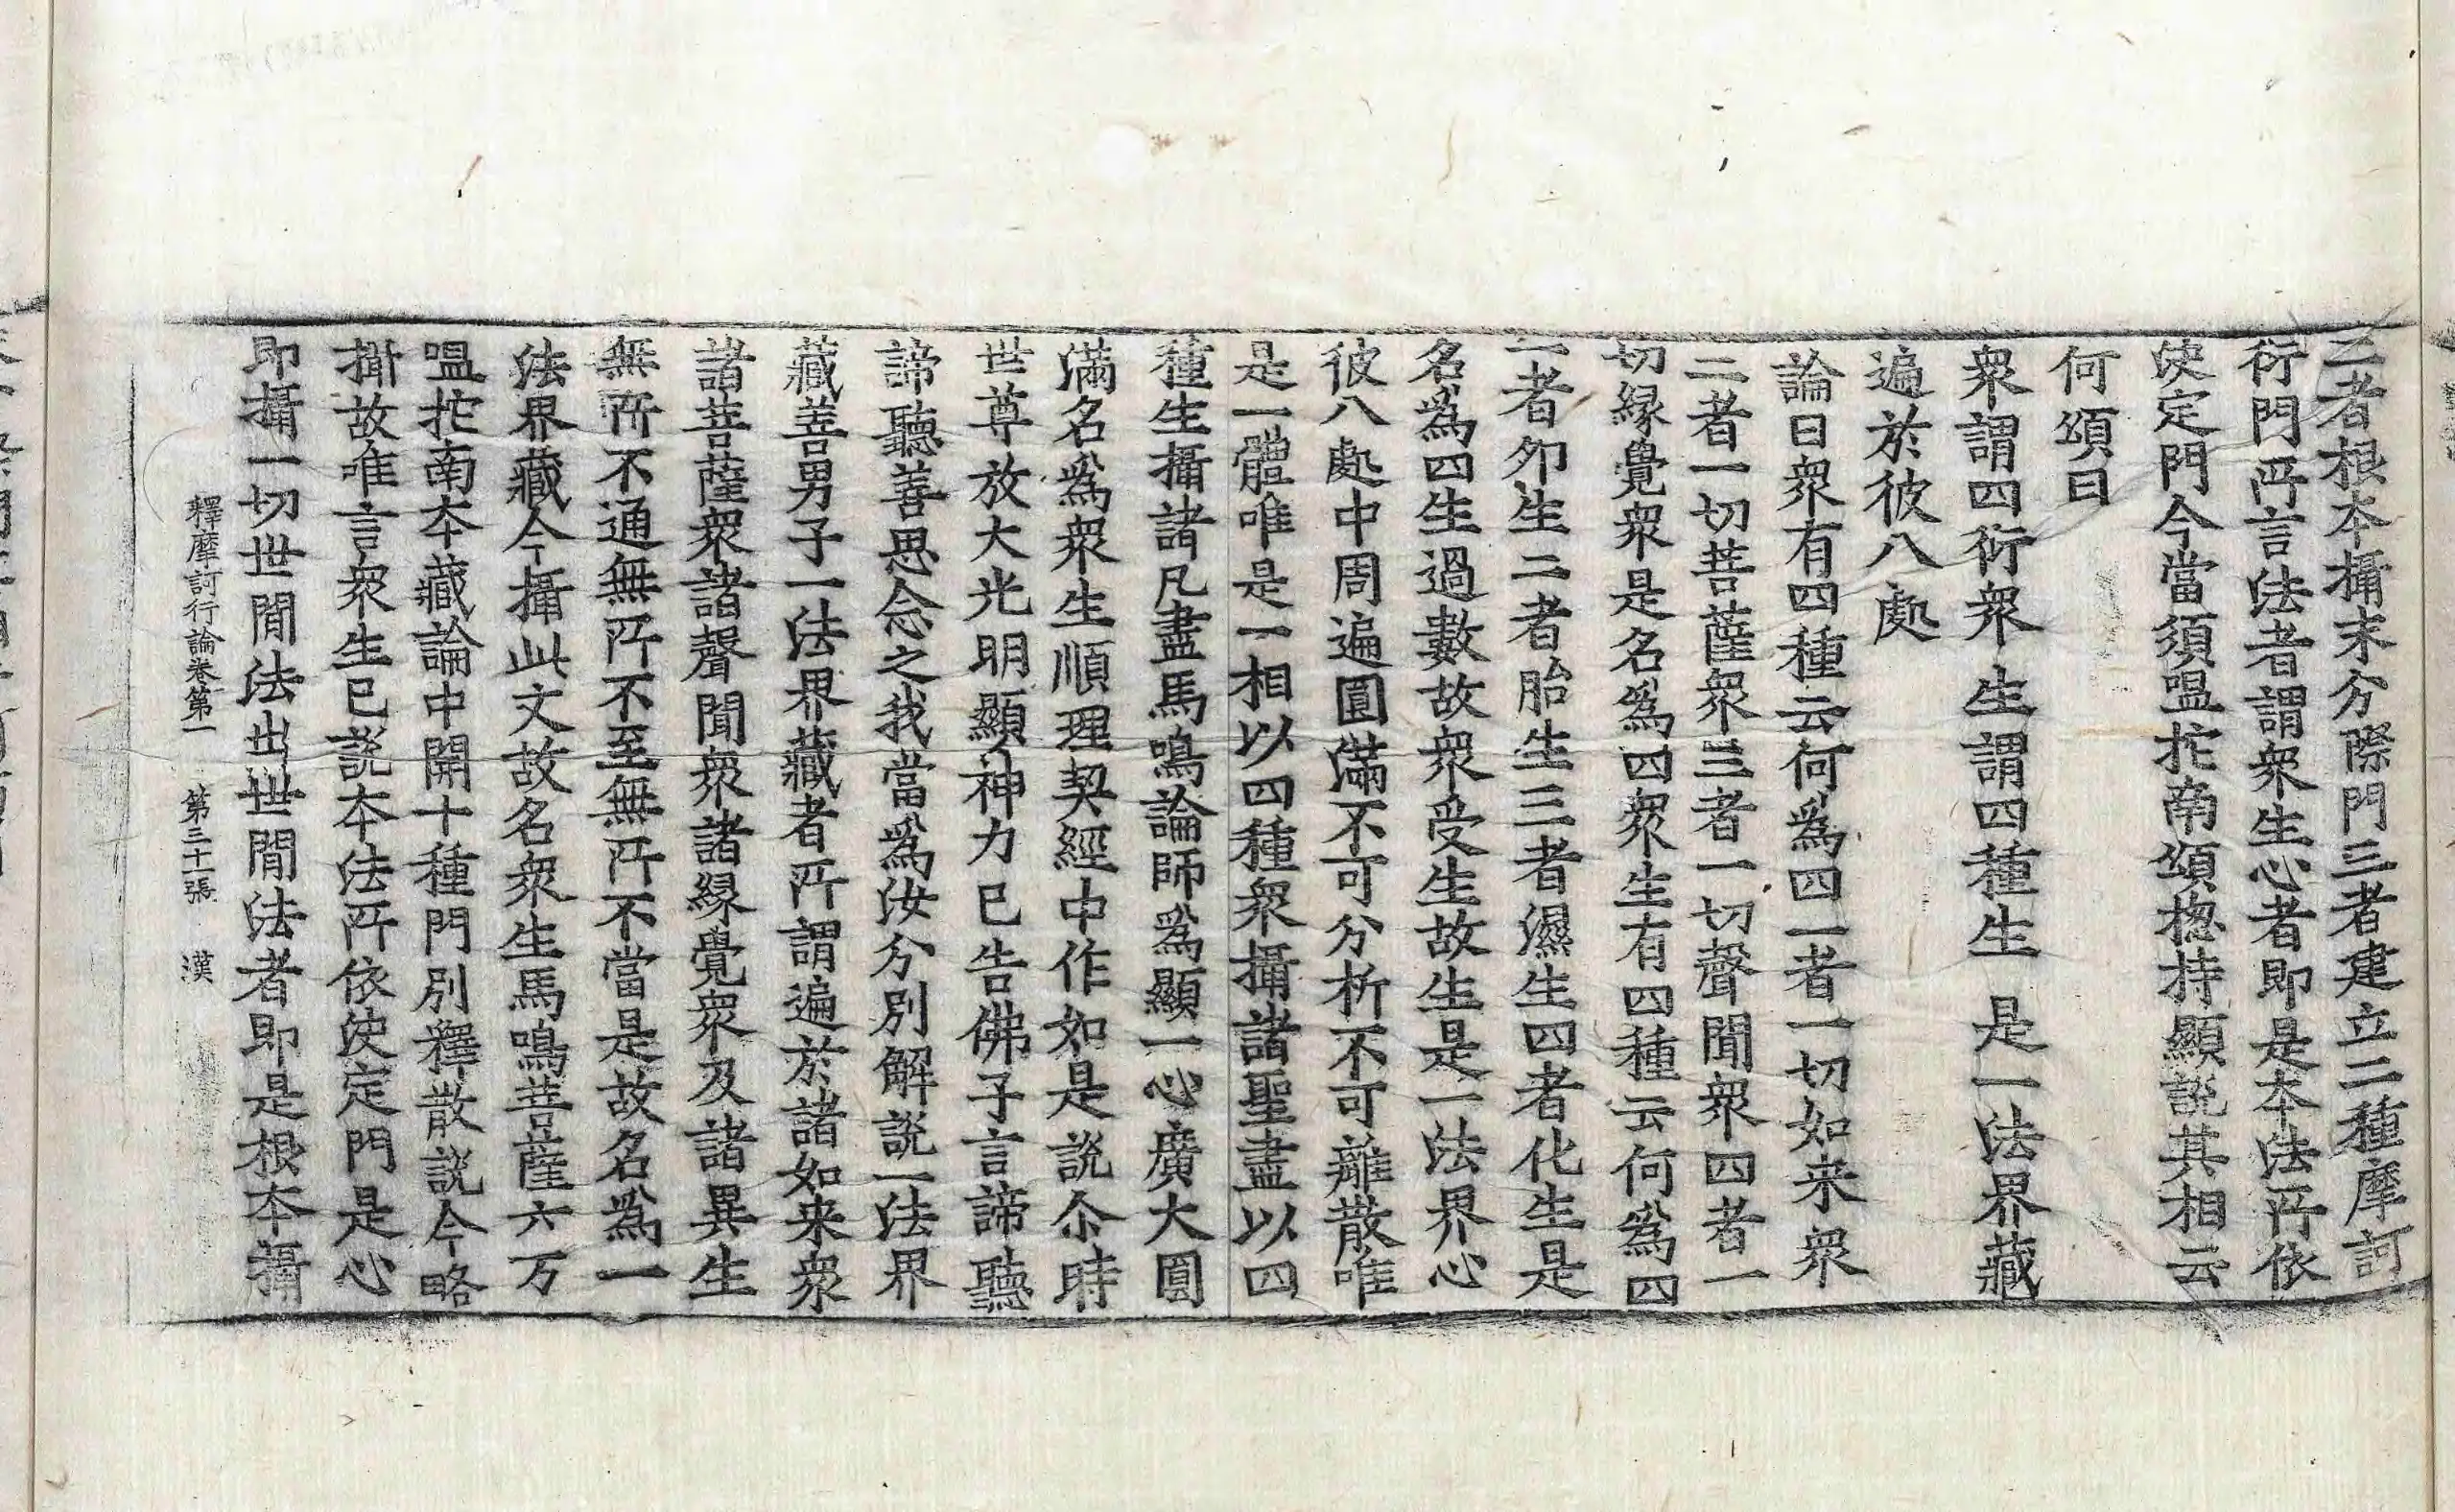 二者根本攝末分際門三者建立二種摩訶
衍門所言法者謂衆生心者即是本法所依
决定門今當須嗢拕南頌揔持顯說其相云
何頌曰
衆謂四衍衆 生謂四種生 是一法界藏
遍於彼八處
論曰衆有四種云何爲四一者一切如来衆
二者一切菩薩衆三者一切聲聞衆四者一
切縁覺衆是名爲四衆生有四種云何爲四
一者夘生二者胎生三者濕生四者化生是
名爲四生過數故衆受生故生是一法界心
彼八處中周遍圓滿不可分析不可離散唯
是一體唯是一相以四種衆攝諸聖盡以四
種生攝諸凡盡馬鳴論師爲顯一心廣大圓
滿名爲衆生順理契經中作如是說尒時
世尊放大光明顯神力已告佛子言諦聽
諦聽善思念之我當爲汝分別解說一法界
藏善男子一法界藏者所謂遍於諸如来衆
諸菩薩衆諸聲聞衆諸縁覺衆及諸異生
無所不通無所不至無所不當是故名爲一
法界藏今攝此文故名衆生馬鳴菩薩六万
嗢拕南本藏論中開十種門別釋散說今略
攝故唯言衆生已說本法所依决定門是心
即攝一切世間法出世間法者即是根本攝
釋摩訶衍論卷第一 第三十一張 漢